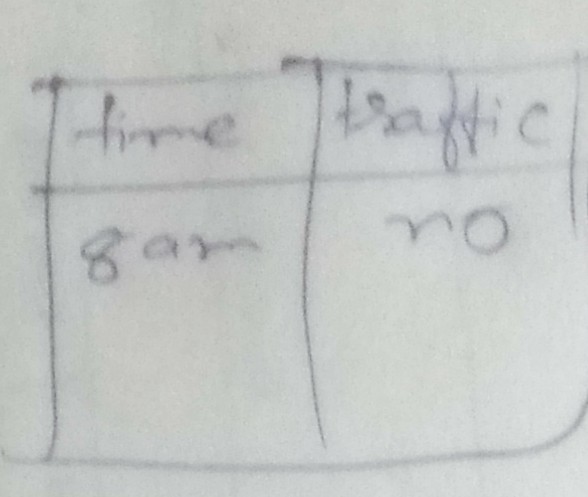 time traffic
8 am no